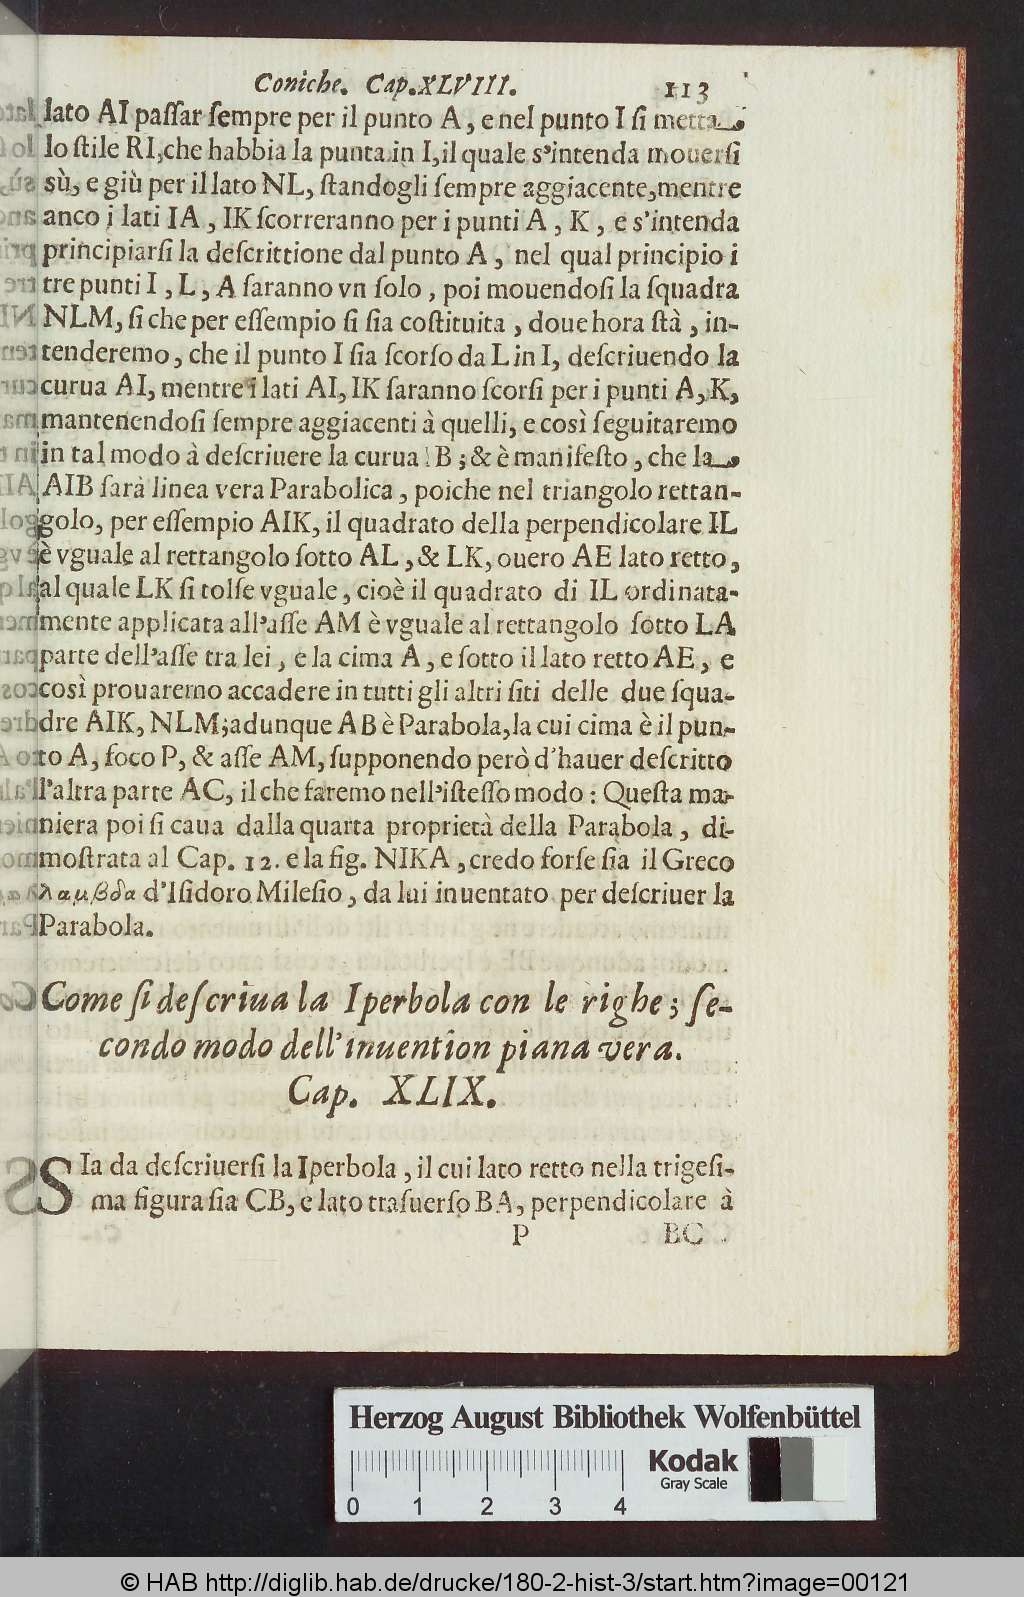 Coniche. Cap. XLVIII. 113
lato AI paſſar ſempre per il punto A, e nel punto I ſi metta
lo ſtile RI, che habbia la punta in I, il quale s'intenda mouerſi
sù, e giù per il lato NL, ſtandogli ſempre aggiacente, mentre
anco i lati IA, IK ſcorreranno per i punti A, K, e s'intenda
principiarſi la deſcrittione dal punto A, nel qual principio i
tre punti I, L, A ſaranno vn ſolo, poi mouendoſi la ſquadra
NLM, ſi che per eſſempio ſi ſia coſtituita, doue hora ſtà, in-
tenderemo, che il punto I ſia ſcorſo da L in I, deſcriuendo la
curua AI, mentre i lati AI, IK ſaranno ſcorſi per i punti A, K,
mantenendoſi ſempre aggiacenti à quelli, e così ſeguitaremo
in tal modo à deſcriuere la curua IB; & è manifeſto, che la
AIB ſarà linea vera Parabolica, poiche nel triangolo rettan-
golo, per eſſempio AIK, il quadrato della perpendicolare IL
è vguale al rettangolo ſotto AL, & LK, ouero AE lato retto,
al quale LK ſi tolſe vguale, cioè il quadrato di IL ordinata-
mente applicata all'aſſe AM è vguale al rettangolo ſotto LA
parte dell'aſſe tra lei, e la cima A, e ſotto il lato retto AE, e
così prouaremo accadere in tutti gli altri ſiti delle due ſqua-
dre AIK, NLM; adunque AB è Parabola, la cui cima è il pun-
to A, foco P, & aſſe AM, ſupponendo però d'hauer deſcritto
l'altra parte AC, il che faremo nell'iſteſſo modo: Queſta ma-
niera poi ſi caua dalla quarta proprietà della Parabola, di-
moſtrata al Cap. 12. e la fig. NIKA, credo forſe ſia il Greco
λαμβδα d'Iſidoro Mileſio, da lui inuentato per deſcriuer la
Parabola.
Come ſi deſcriua la Iperbola con le righe; ſe-
condo modo dell'inuention piana vera.
Cap. XLIX.
SIa da deſcriuerſi la Iperbola, il cui lato retto nella trigeſi-
ma figura ſia CB, e lato traſuerſo BA, perpendicolare à
P BC
Herzog August Bibliothek Wolfenbüttel
Kodak
Gray Scale
0 1 2 3 4
© HAB http://diglib.hab.de/drucke/180-2-hist-3/start.htm?image=00121